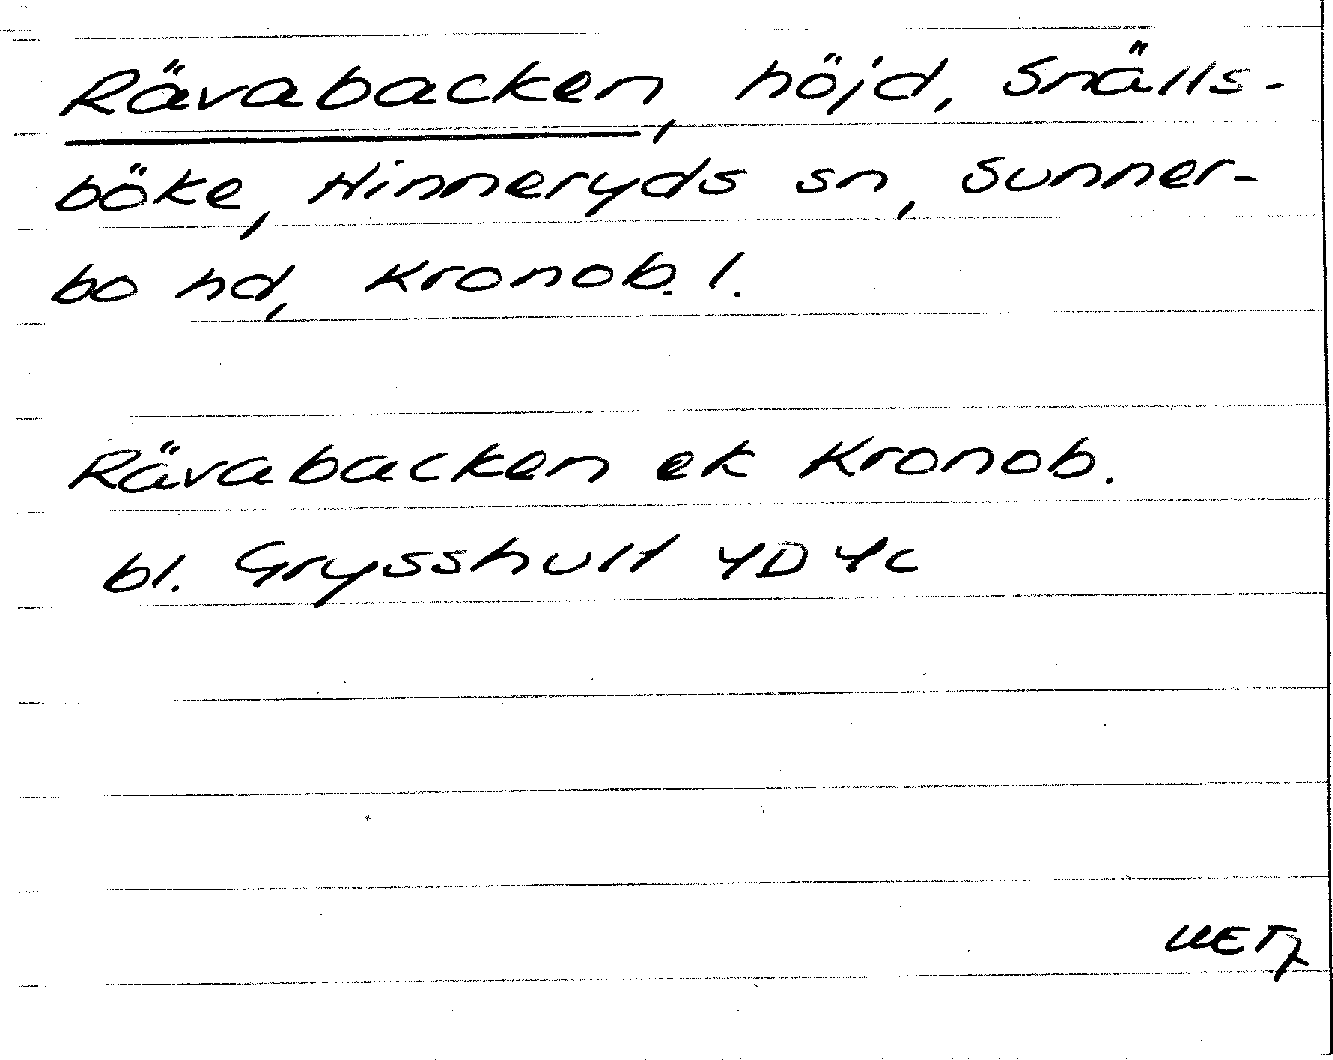 Rävabacken, höjd, Snälls-
böke, Hinneryds sn, Sunner-
bo hd, Kronob. l.
Rävabacken ek Kronob.
bl. Grysshult 4D 4c